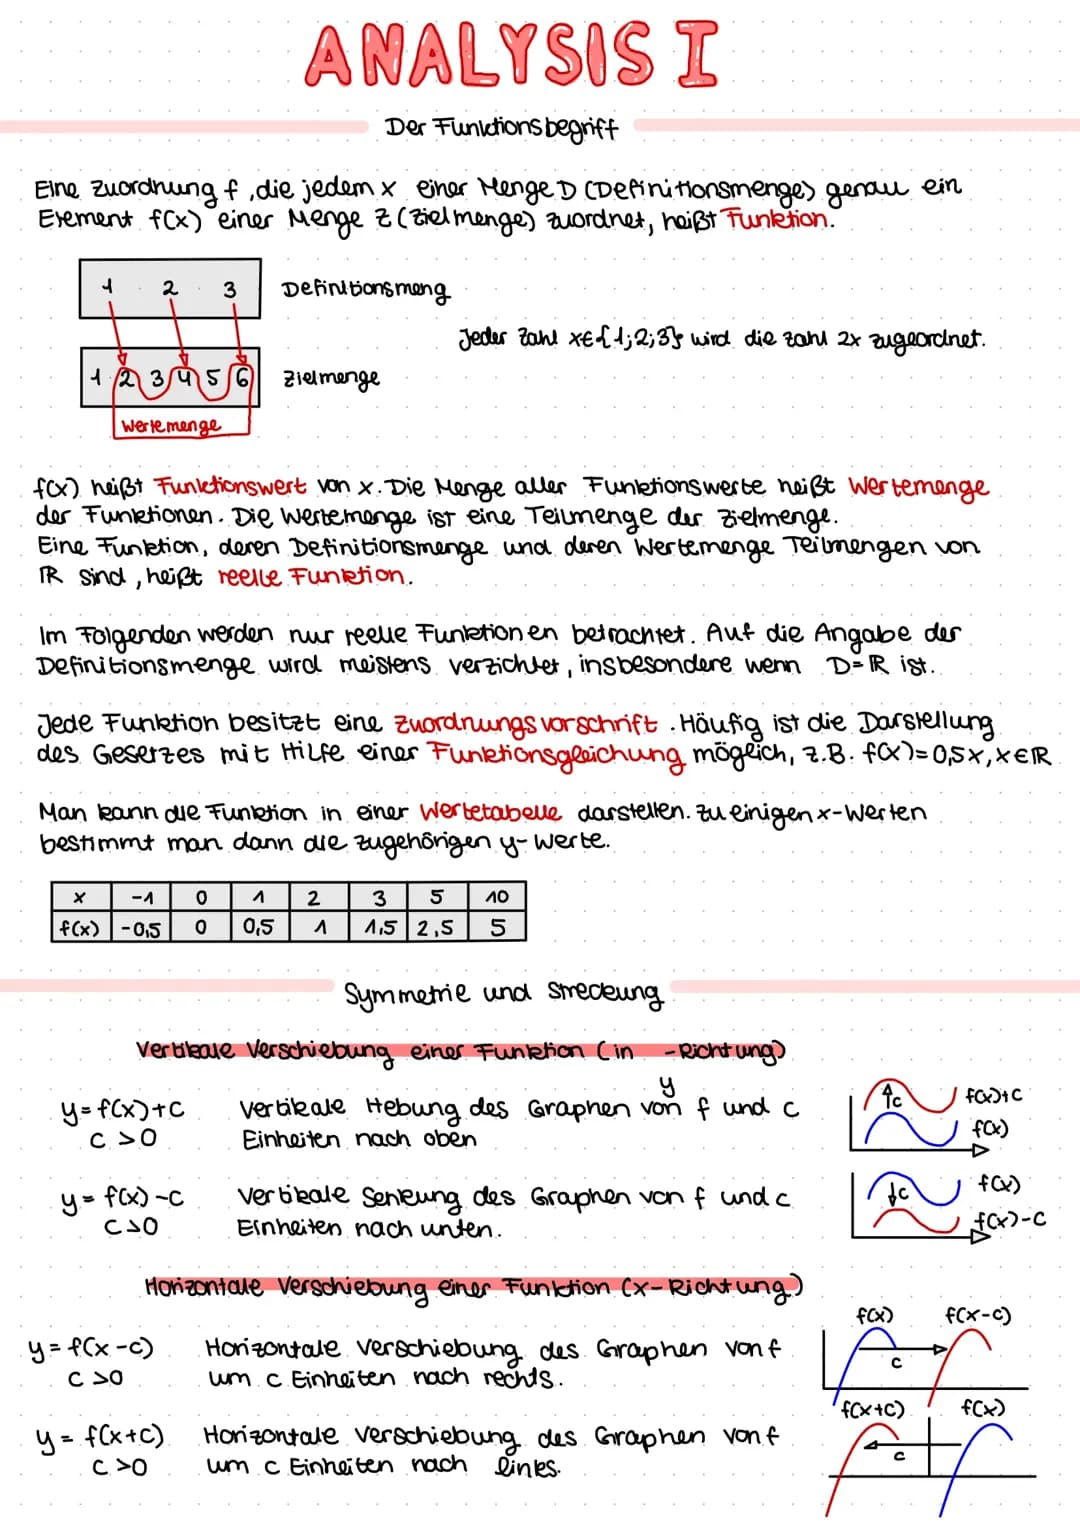 ANALYSIS I
Der Funktionsbegriff
Eine Zuordnung f, die jedem x einer Menge D (Definitionsmenge) genau ein
Element f(x) einer Menge Z (Zielmenge) zuordnet, heißt Funktion.
1 2 3 Definitionsmeng
Jeder Zahl x∈{1;2;3} wird die Zahl 2x zugeordnet.
1 2 3 4 5 6 Zielmenge
Wertemenge
f(x) heißt Funktionswert von x. Die Menge aller Funktionswerte heißt Wertemenge
der Funktionen. Die Wertemenge ist eine Teilmenge der Zielmenge.
Eine Funktion, deren Definitionsmenge und deren Wertemenge Teilmengen von
ℝ sind, heißt reelle Funktion.
Im Folgenden werden nur reelle Funktionen betrachtet. Auf die Angabe der
Definitionsmenge wird meistens verzichtet, insbesondere wenn D=ℝ ist.
Jede Funktion besitzt eine Zuordnungsvorschrift. Häufig ist die Darstellung
des Gesetzes mit Hilfe einer Funktionsgleichung möglich, z.B. f(x)=0,5x, x∈ℝ
Man kann die Funktion in einer Wertetabelle darstellen. Zu einigen x-Werten
bestimmt man dann die zugehörigen y-Werte.
x -1 0 1 2 3 5 10
f(x) -0,5 0 0,5 1 1,5 2,5 5
Symmetrie und Streckung
Vertikale Verschiebung einer Funktion (in y-Richtung)
y=f(x)+c Vertikale Hebung des Graphen von f und c
c>0 Einheiten nach oben
c f(x)+c
f(x)
y=f(x)-c Vertikale Senkung des Graphen von f und c
c>0 Einheiten nach unten.
c f(x)
f(x)-c
Horizontale Verschiebung einer Funktion (x-Richtung)
f(x) f(x-c)
y=f(x-c) Horizontale Verschiebung des Graphen von f
c>0 um c Einheiten nach rechts.
c
f(x+c) f(x)
y=f(x+c) Horizontale Verschiebung des Graphen von f
c>0 um c Einheiten nach links.
c